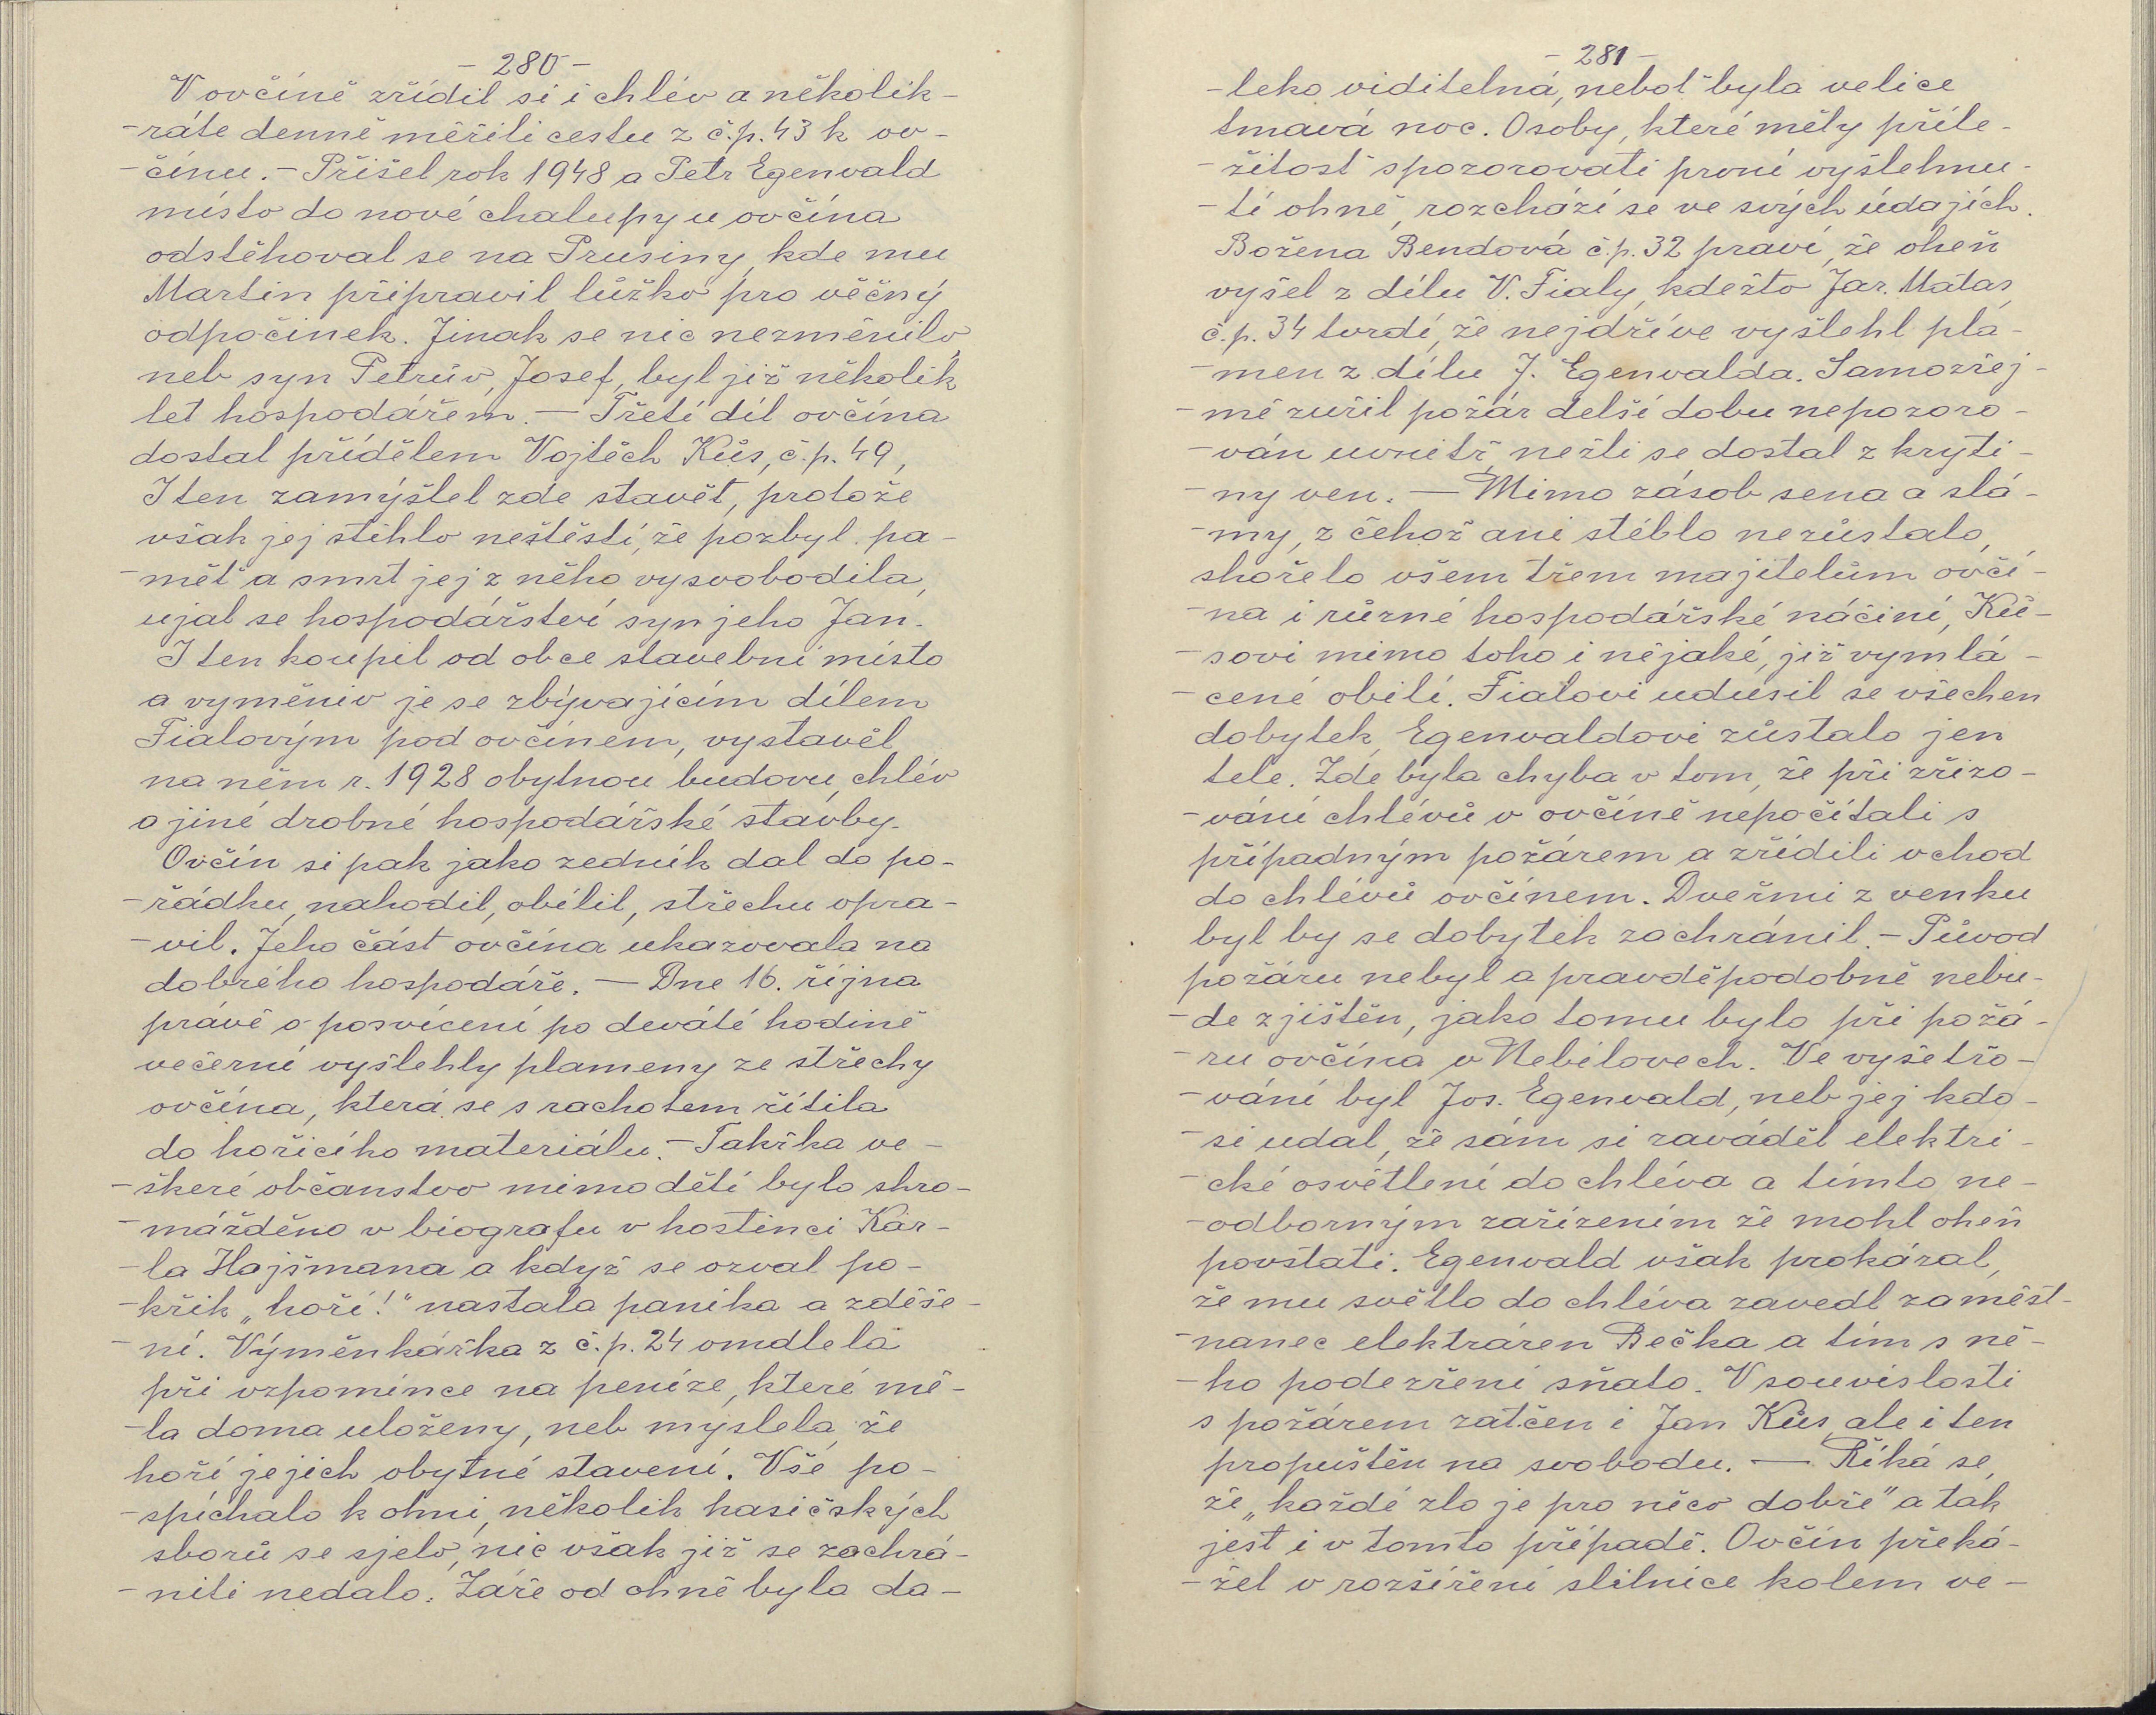 - 280 -
V ovčíně zřídil si i chlév a několik-
-ráte denně měřili cestu z č.p. 43 k ov-
-čínu. - Přišel rok 1948 a Petr Egenvald
místo do nové chalupy u ovčína
odstěhoval se na Prusiny, kde mu
Martin připravil lůžko pro věčný
odpočinek. Jinak se nic nezměnilo,
neb syn Petrův, Josef, byl již několik
let hospodářem. — Třetí díl ovčína
dostal přídělem Vojtěch Kůs, č.p. 49,
I ten zamýšlel zde stavět, protože
však jej stihlo neštěstí, že pozbyl pa-
-měť a smrt jej z něho vysvobodila,
ujal se hospodářství syn jeho Jan.
I ten koupil od obce stavební místo
a vyměniv je se zbývajícím dílem
Fialovým pod ovčínem, vystavěl
na něm r. 1928 obytnou budovu, chlév
a jiné drobné hospodářské stavby.
Ovčín si pak jako zedník dal do po-
-řádku, nahodil, obílil, střechu opra-
-vil. Jeho část ovčína ukazovala na
dobrého hospodáře. — Dne 16. října
právě o posvícení po deváté hodině
večerní vyšlehly plameny ze střechy
ovčína, která se s rachotem řítila
do hořícího materiálu. - Takřka ve-
-škeré občanstvo mimo dětí bylo shro-
-mážděno v biografu v hostinci Kar-
-la Hajšmana a když se ozval po-
-křik „hoří!" nastala panika a zděše-
-ní. Výměnkářka z č.p. 24 omdlela
při vzpomínce na peníze, které mě-
-la doma uloženy, neb myslela, že
hoří jejich obytné stavení. Vše po-
-spíchalo k ohni, několik hasičských
sborů se sjelo, nic však již se zachrá-
-niti nedalo. Záře od ohně byla da-
- 281 -
-leko viditelná, neboť byla velice
tmavá noc. Osoby, které měly příle-
-žitost spozorovati první vyšlehnu-
-tí ohně, rozchází se ve svých údajích.
Božena Bendová č.p. 32 praví, že oheň
vyšel z dílu V. Fialy, kdežto Jar. Matas,
č.p. 34 tvrdí, že nejdříve vyšlehl pla-
-men z dílu J. Egenvalda. Samozřej-
-mě zuřil požár delší dobu nepozoro-
-ván uvnitř, nežli se dostal z kryti-
-ny ven. — Mimo zásob sena a slá-
-my, z čehož ani stéblo nezůstalo,
shořelo všem třem majitelům ovčí-
-na i různé hospodářské náčiní, Ků-
-sovi mimo toho i nějaké, již vymlá-
-cené obilí. Fialovi udusil se všechen
dobytek, Egenvaldovi zůstalo jen
tele. Zde byla chyba v tom, že při zřizo-
-vání chlévů v ovčíně nepočítali s
případným požárem a zřídili vchod
do chlévů ovčínem. Dveřmi z venku
byl by se dobytek zachránil. - Původ
požáru nebyl a pravděpodobně nebu-
-de zjištěn, jako tomu bylo při požá-
-ru ovčína v Nebílovech. Ve vyšetřo-
-vání byl Jos. Egenvald, neb jej kdo-
-si udal, že sám si zaváděl elektri-
-cké osvětlení do chléva a tímto ne-
-odborným zařízením že mohl oheň
povstati. Egenvald však prokázal,
že mu světlo do chléva zavedl zaměst-
-nanec elektráren Bečka a tím s ně-
-ho podezření sňato. V souvislosti
s požárem zatčen i Jan Kůs, ale i ten
propuštěn na svobodu. — Říká se,
že „každé zlo je pro něco dobře" a tak
jest i v tomto případě. Ovčín překá-
-žel v rozšíření silnice kolem ve-